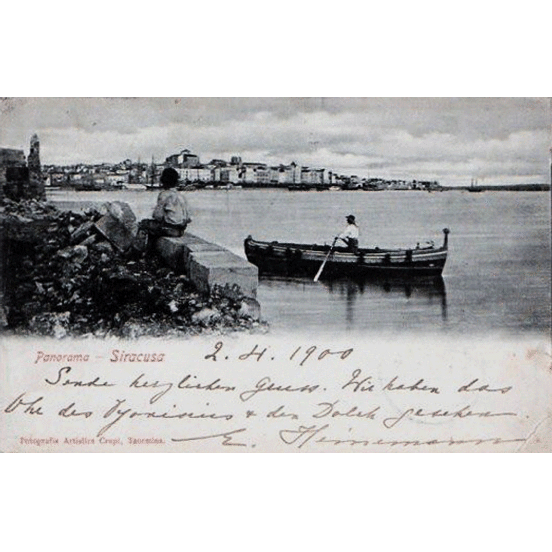 Panorama – Siracusa 2. 4. 1900
Sende herzlichen Gruss. Wir haben das
Ohr des Dyonisius & den Dolch gesehen.
Fotografia Artistica Crupi, Taormina. E. Heinemann